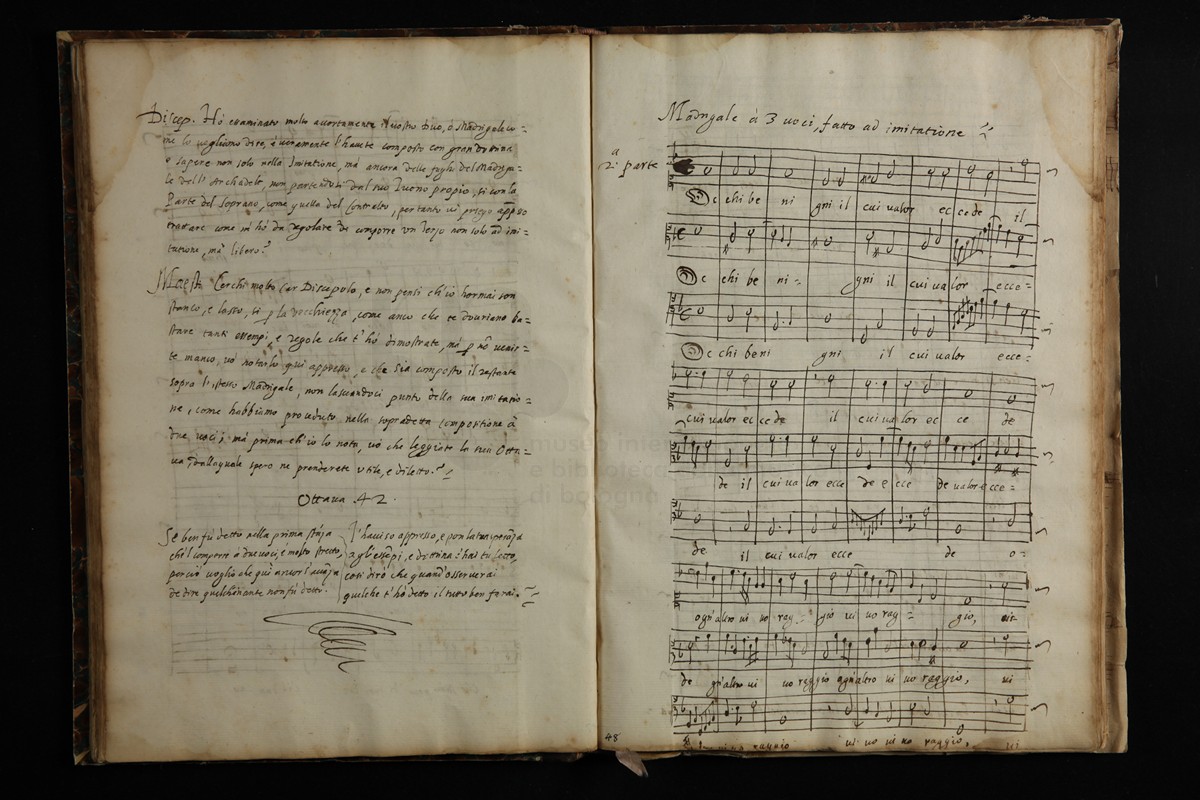 Discep. Hò essaminato molto accortamente il vostro Duo, ò Madrigale co=
me lo vogliamo dire, è veramente l'hauete composto con gran dottrina
e sapere non solo nella Imitatione, mà ancora delle fughe del Madriga=
le dell' Archadelt, non partendoui dal suo Tuono propio, si con la
Parte del Soprano, come quella del Contralto, per tanto vi priego appsso
trattare come m'hò da regolare di comporre vn Terzo non solo ad imi=
tatione, mà libero?
Maest. Cerchi molto Car Discepolo, e non pensi ch'io hormai son
stanco, e lasso, si p la vecchiezza, come anco che te douriano ba=
stare tanti essempi, e regole che t'hò dimostrate, mà p nõ venir=
te manco, vò notarlo qui appresso, e che sia composto il restante
sopra l'istesso Madrigale, non lasciandoci punto della sua imitatio=
ne, come habbiamo proceduto nella sopradetta Compositione à
due voci; mà prima ch'io lo nota, vò che leggiate la tua Otta=
ua, dalla quale spero ne prenderete vtile, e diletto.
Ottaua .42.
Se ben fù detto nella prima stãza
ch'l comporre à due voci, è molto stretto,
perciò voglio che qui ancor
de dire quelch'inante non fù detto.
l'hauiso appresso, e
agl'essẽpi, e dottrina c'hai tù letto,
cosi dirò che quand' osseruerai
quelche t'hò detto il tutto ben farai.
Madrigale à 3 voci, fatto ad imitatione
a
2. parte
c chi be ni gni il cui valor ec ce de il
c chi be ni= gni il cui valor ecce=
c chi beni gni il cui valor ecce=
cui valor ec ce de il cui va lor ec ce de
de il cui va lor ecce de e cce de valor ecce=
de il cui valor ecce de o=
ogn'altro ui uo rag= gio ui uo rag= gio, ui=
de gn'altro ui uo raggio ogn'altro ui uo raggio, ui
raggio ui uo ui uo raggio, ui
48
museo inter
e biblioteca
di bologna